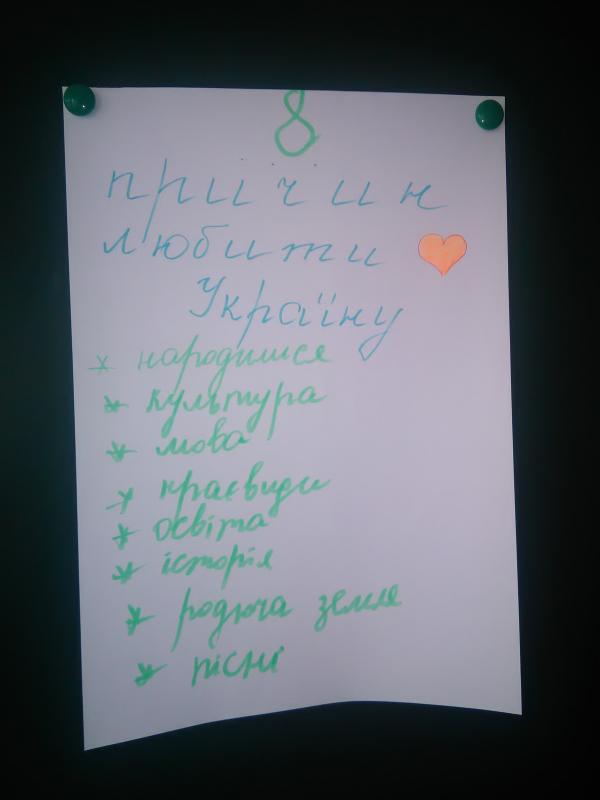 8
причин
любити
Україну
* народилися
* культура
* мова
* краєвиди
* освіта
* історія
* родюча земля
* пісні